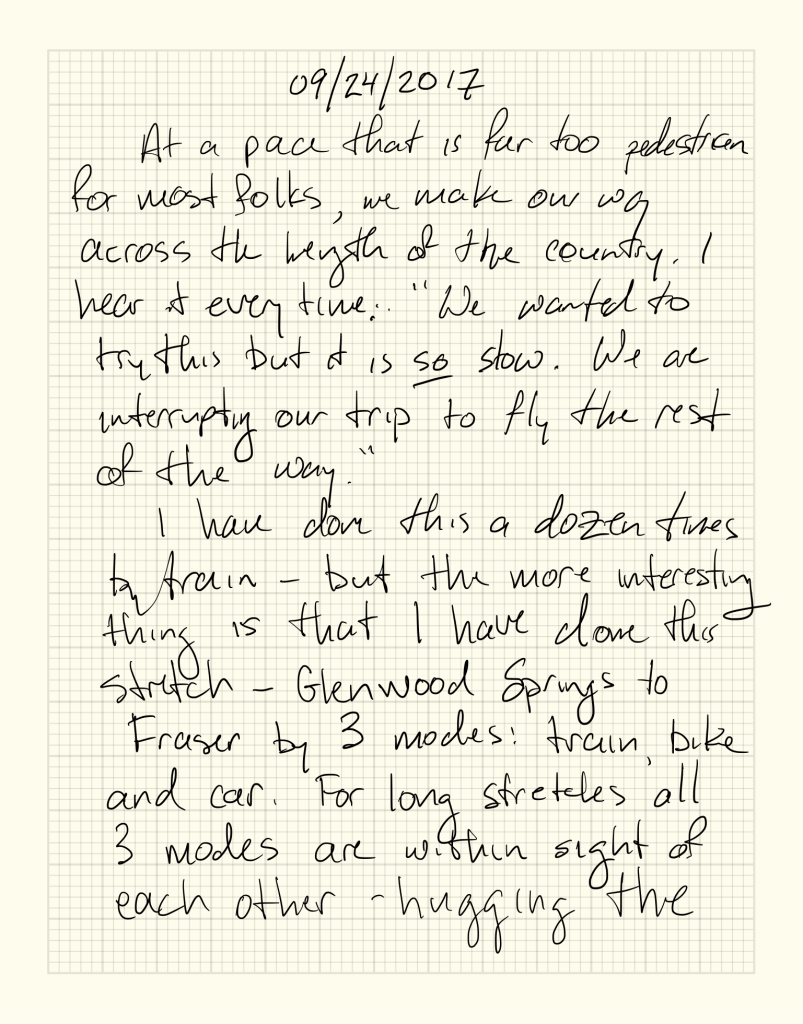 09/24/2017
At a pace that is far too pedestrian
for most folks, we make our way
across the length of the country. I
hear it every time: "We wanted to
try this but it is so slow. We are
interrupting our trip to fly the rest
of the way."
I have done this a dozen times
by train - but the more interesting
thing is that I have done this
stretch - Glenwood Springs to
Fraser by 3 modes: train, bike
and car. For long stretches all
3 modes are within sight of
each other - hugging the